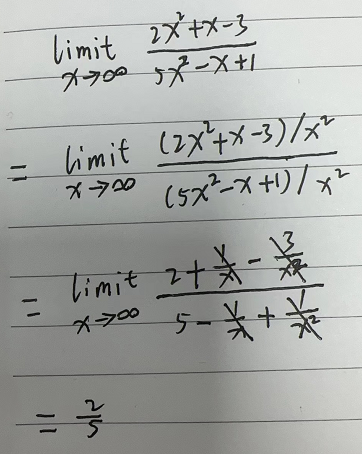 limit x→∞ (2x²+x-3)/(5x²-x+1)
= limit x→∞ ((2x²+x-3)/x²)/((5x²-x+1)/x²)
= limit x→∞ (2+1/x-3/x²)/(5-1/x+1/x²)
= 2/5